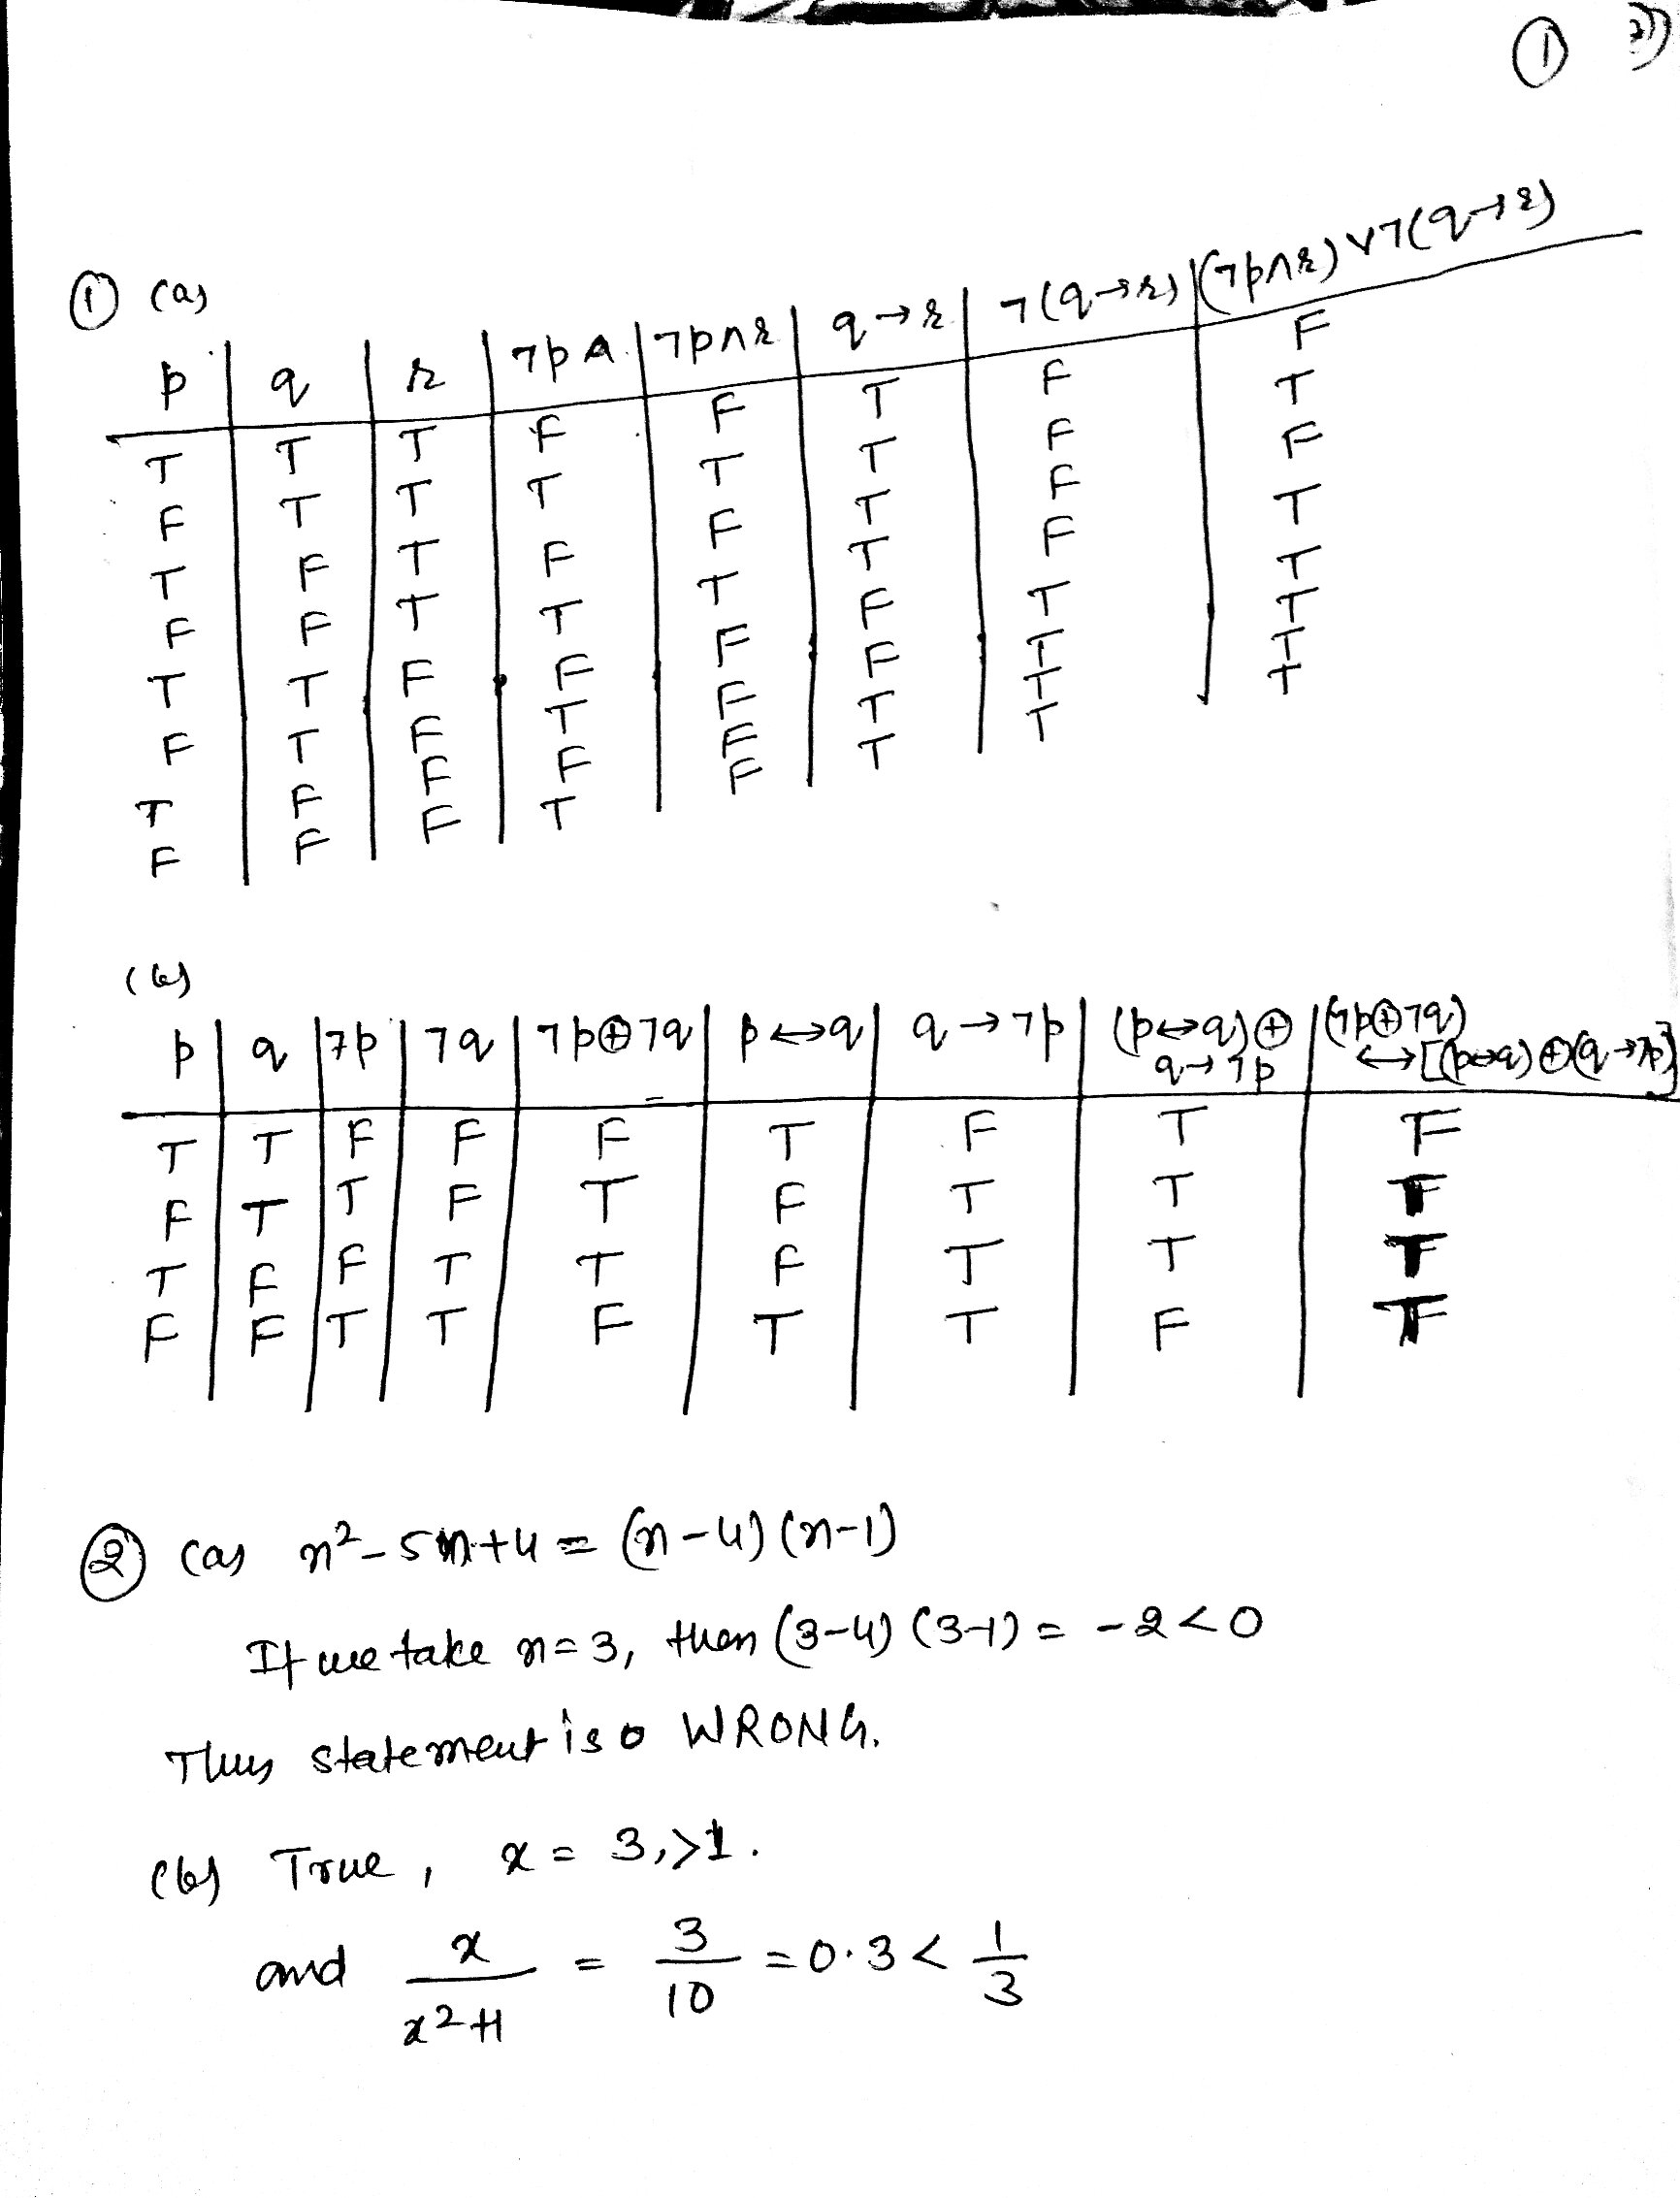 ① 
① (a)
p | q | r | ¬p | ¬p∧r | q→r | ¬(q→r) | (¬p∧r)∨¬(q→r)
T | T | T | F | F | T | F | F
F | T | T | T | T | T | F | T
T | F | T | F | F | T | F | F
F | F | T | T | T | T | F | T
T | T | F | F | F | F | T | T
F | T | F | T | F | F | T | T
T | F | F | F | F | T | T | T
F | F | F | T | F | T | T | T
(b)
p | q | ¬p | ¬q | ¬p⊕¬q | p↔q | q→¬p | (p↔q)⊕ q→¬p | (¬p⊕¬q) ↔[(p↔q)⊕(q→¬p)]
T | T | F | F | F | T | F | T | F
F | T | T | F | T | F | T | T
T | F | F | T | T | F | T | T
F | F | T | T | F | T | T | F
② (a) n²-5n+4 = (n-4)(n-1)
If we take n=3, then (3-4)(3-1) = -2<0
Thus statement is WRONG.
(b) True, x = 3,>1.
and x/(x²+1) = 3/10 = 0.3 < 1/3